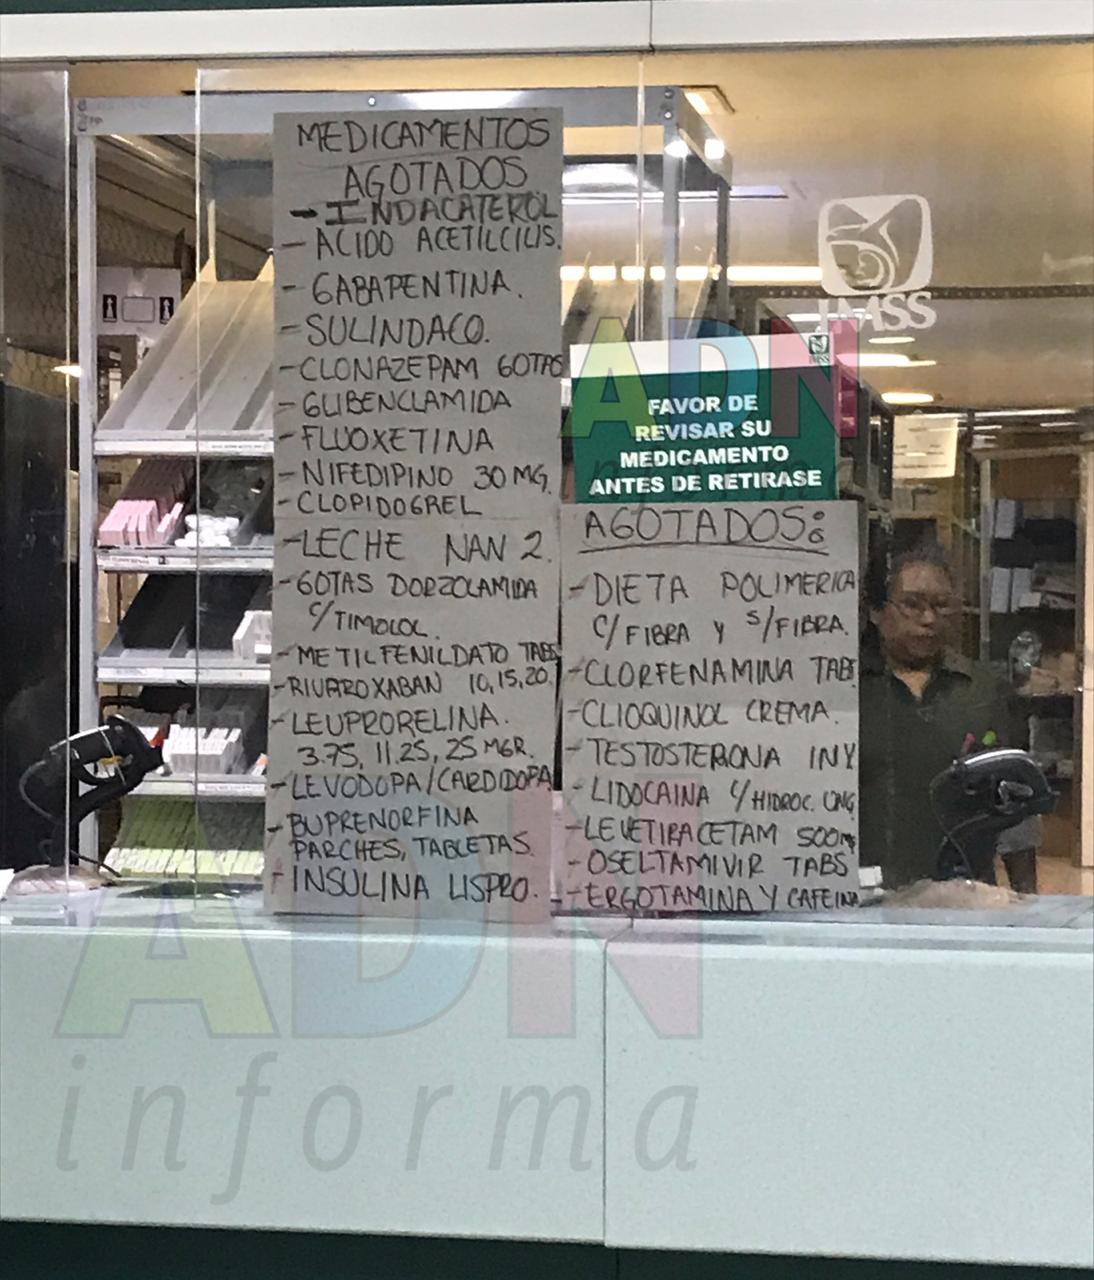 MEDICAMENTOS
AGOTADOS
- INDACATEROL
- ACIDO ACETILCILIS.
- GABAPENTINA.
- SULINDACO.
- CLONAZEPAM GOTAS
- GLIBENCLAMIDA
- FLUOXETINA
- NIFEDIPINO 30 MG.
- CLOPIDOGREL
- LECHE NAN 2.
- GOTAS DORZOLAMIDA
C/TIMOLOL.
- METILFENILDATO TABS
- RIVAROXABAN 10,15,20.
- LEUPRORELINA.
3.75, 11.25, 25 MGR.
- LEVODOPA/CARDIDOPA
- BUPRENORFINA
PARCHES, TABLETAS.
- INSULINA LISPRO.
IMSS
FAVOR DE
REVISAR SU
MEDICAMENTO
ANTES DE RETIRASE
AGOTADOS:
- DIETA POLIMERICA
C/FIBRA Y S/FIBRA.
- CLORFENAMINA TABS
- CLIOQUINOL CREMA.
- TESTOSTERONA INY
- LIDOCAINA C/HIDROC. UNG
- LEVETIRACETAM 500mg
- OSELTAMIVIR TABS
- ERGOTAMINA Y CAFEINA
ADN
ADN
informa